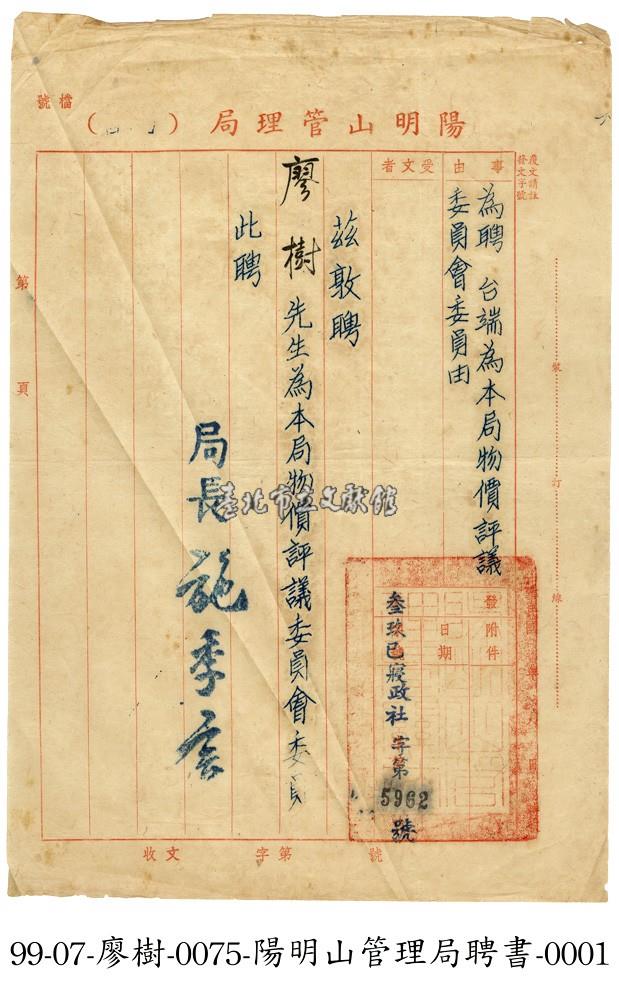 檔號
陽明山管理局（　）
覆文請註
發文字號
事由
受文者
為聘　台端為本局物價評議
委員會委員由
茲敦聘
廖樹先生為本局物價評議委員會委員
此聘
局長施季言
臺北市立文獻館
裝
訂
線
第　頁
發
附件
日期
叁玖巳寢政社字第
5962
號
收文　字第　號
99-07-廖樹-0075-陽明山管理局聘書-0001